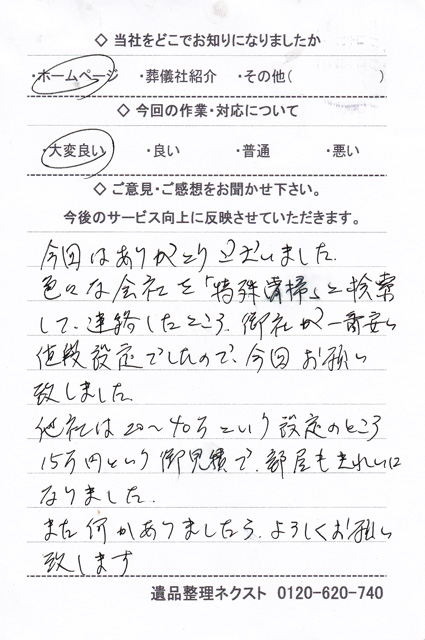 ◇ 当社をどこでお知りになりましたか
・ホームページ ・葬儀社紹介 ・その他( )
◇ 今回の作業・対応について
・大変良い ・良い ・普通 ・悪い
◇ ご意見・ご感想をお聞かせ下さい。
今後のサービス向上に反映させていただきます。
今回はありがとうございました。
色々な会社を「特殊清掃」と検索
して、連絡したところ、御社が一番安い
値段設定でしたので、今回お願い
致しました。
他社は20~40万という設定のところ
15万円という御見積で、部屋もきれいに
なりました。
また何かありましたら、よろしくお願い
致します
遺品整理ネクスト 0120-620-740